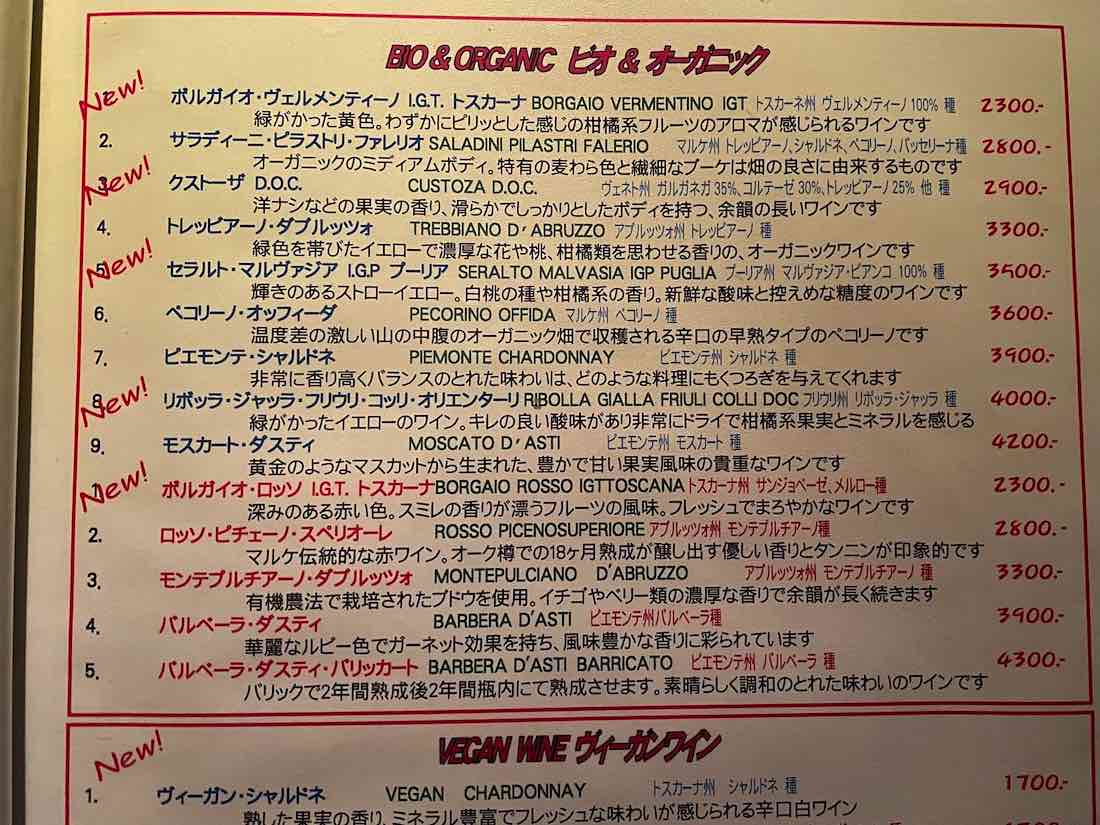 BIO & ORGANIC ビオ & オーガニック
New! ボルガイオ・ヴェルメンティーノ I.G.T. トスカーナ BORGAIO VERMENTINO IGT トスカーネ州 ヴェルメンティーノ 100% 種 2300.-
緑がかった黄色。わずかにピリッとした感じの柑橘系フルーツのアロマが感じられるワインです
2. サラディーニ・ピラストリ・ファレリオ SALADINI PILASTRI FALERIO マルケ州 トレッビアーノ、シャルドネ、ペコリーノ、パッセリーナ種 2800.-
オーガニックのミディアムボディ。特有の麦わら色と繊細なブーケは畑の良さに由来するものです
New! 3. クストーザ D.O.C. CUSTOZA D.O.C. ヴェネト州 ガルガネガ 35%、コルテーゼ 30%、トレッビアーノ 25% 他 種 2900.-
洋ナシなどの果実の香り、滑らかでしっかりとしたボディを持つ、余韻の長いワインです
4. トレッビアーノ・ダブルッツォ TREBBIANO D'ABRUZZO アブルッツォ州 トレッビアーノ 種 3300.-
緑色を帯びたイエローで濃厚な花や桃、柑橘類を思わせる香りの、オーガニックワインです
New! 5. セラルト・マルヴァジア I.G.P プーリア SERALTO MALVASIA IGP PUGLIA プーリア州 マルヴァジア・ビアンコ 100% 種 3500.-
輝きのあるストローイエロー。白桃の種や柑橘系の香り。新鮮な酸味と控えめな糖度のワインです
6. ペコリーノ・オッフィーダ PECORINO OFFIDA マルケ州 ペコリーノ 種 3600.-
温度差の激しい山の中腹のオーガニック畑で収穫される辛口の早熟タイプのペコリーノです
7. ピエモンテ・シャルドネ PIEMONTE CHARDONNAY ピエモンテ州 シャルドネ 種 3900.-
非常に香り高くバランスのとれた味わいは、どのような料理にもくつろぎを与えてくれます
New! 8. リボッラ・ジャッラ・フリウリ・コッリ・オリエンターリ RIBOLLA GIALLA FRIULI COLLI DOC フリウリ州 リボッラ・ジャッラ 種 4000.-
緑がかったイエローのワイン。キレの良い酸味があり非常にドライで柑橘系果実とミネラルを感じる
9. モスカート・ダスティ MOSCATO D'ASTI ピエモンテ州 モスカート 種 4200.-
黄金のようなマスカットから生まれた、豊かで甘い果実風味の貴重なワインです
New! ボルガイオ・ロッソ I.G.T. トスカーナ BORGAIO ROSSO IGTTOSCANA トスカーナ州 サンジョベーゼ、メルロー種 2300.-
深みのある赤い色。スミレの香りが漂うフルーツの風味。フレッシュでまろやかなワインです
2. ロッソ・ピチェーノ・スペリオーレ ROSSO PICENOSUPERIORE アブルッツォ州 モンテプルチアーノ種 2800.-
マルケ伝統的な赤ワイン。オーク樽での18ヶ月熟成が醸し出す優しい香りとタンニンが印象的です
3. モンテプルチアーノ・ダブルッツォ MONTEPULCIANO D'ABRUZZO アブルッツォ州 モンテプルチアーノ 種 3300.-
有機農法で栽培されたブドウを使用。イチゴやベリー類の濃厚な香りで余韻が長く続きます
4. バルベーラ・ダスティ BARBERA D'ASTI ピエモンテ州バルベーラ種 3900.-
華麗なルビー色でガーネット効果を持ち、風味豊かな香りに彩られています
5. バルベーラ・ダスティ・バリッカート BARBERA D'ASTI BARRICATO ピエモンテ州 バルベーラ 種 4300.-
バリックで2年間熟成後2年間瓶内にて熟成させます。素晴らしく調和のとれた味わいのワインです
New! VEGAN WINE ヴィーガンワイン
1. ヴィーガン・シャルドネ VEGAN CHARDONNAY トスカーナ州 シャルドネ 種 1700.-
熟した果実の香り、ミネラル豊富でフレッシュな味わいが感じられる辛口白ワイン